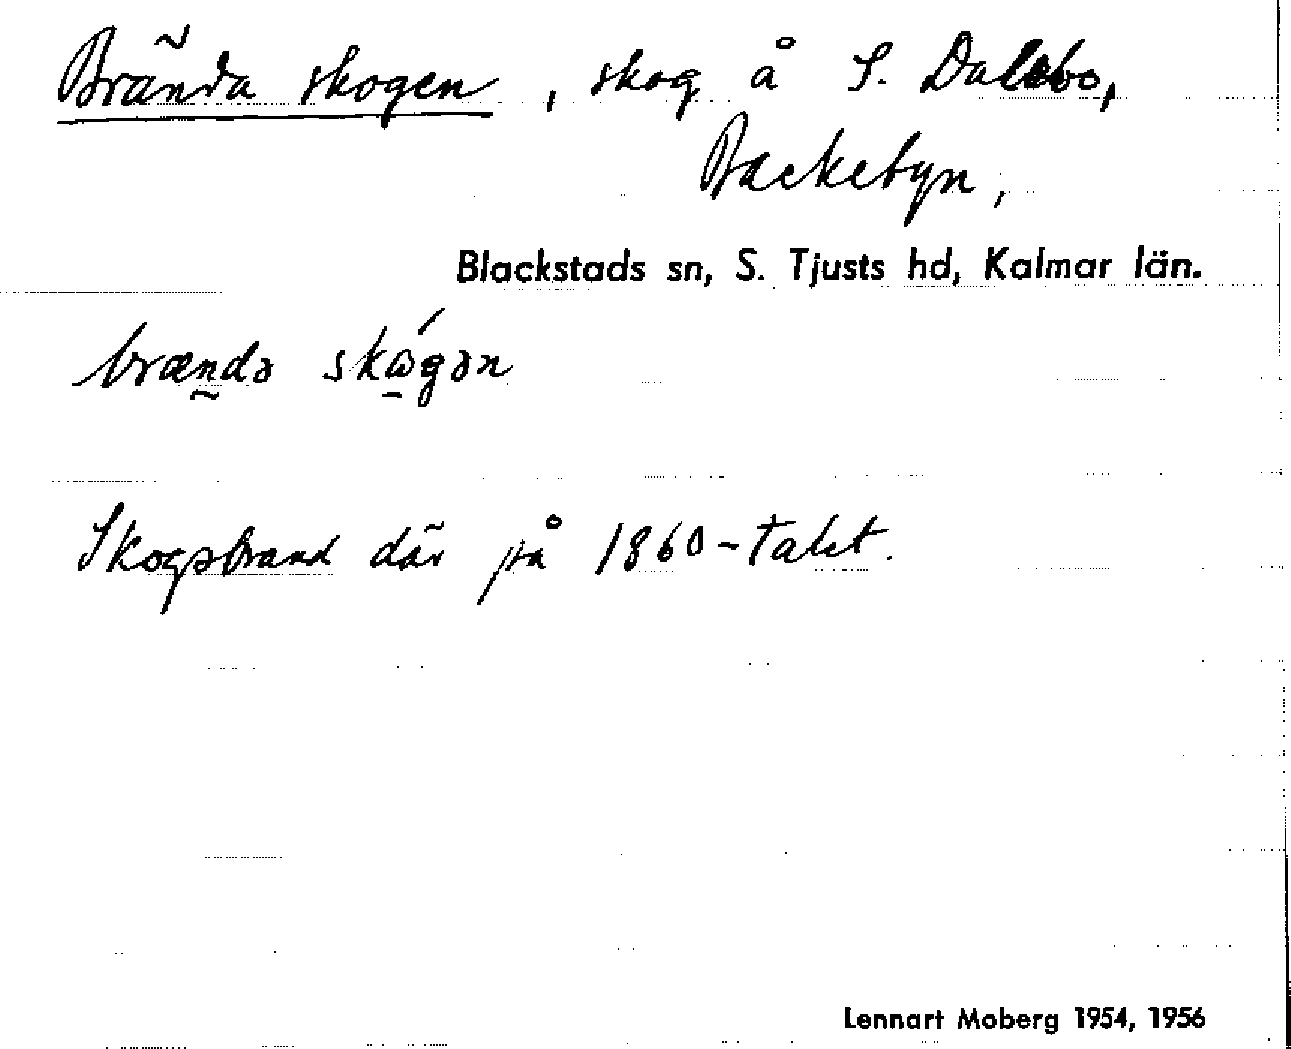 Brända skogen, skog å S. Dalebo,
Backebyn,
Blackstads sn, S. Tjusts hd, Kalmar län.
brænda skógən
Skogsbrand där på 1860-talet.
Lennart Moberg 1954, 1956